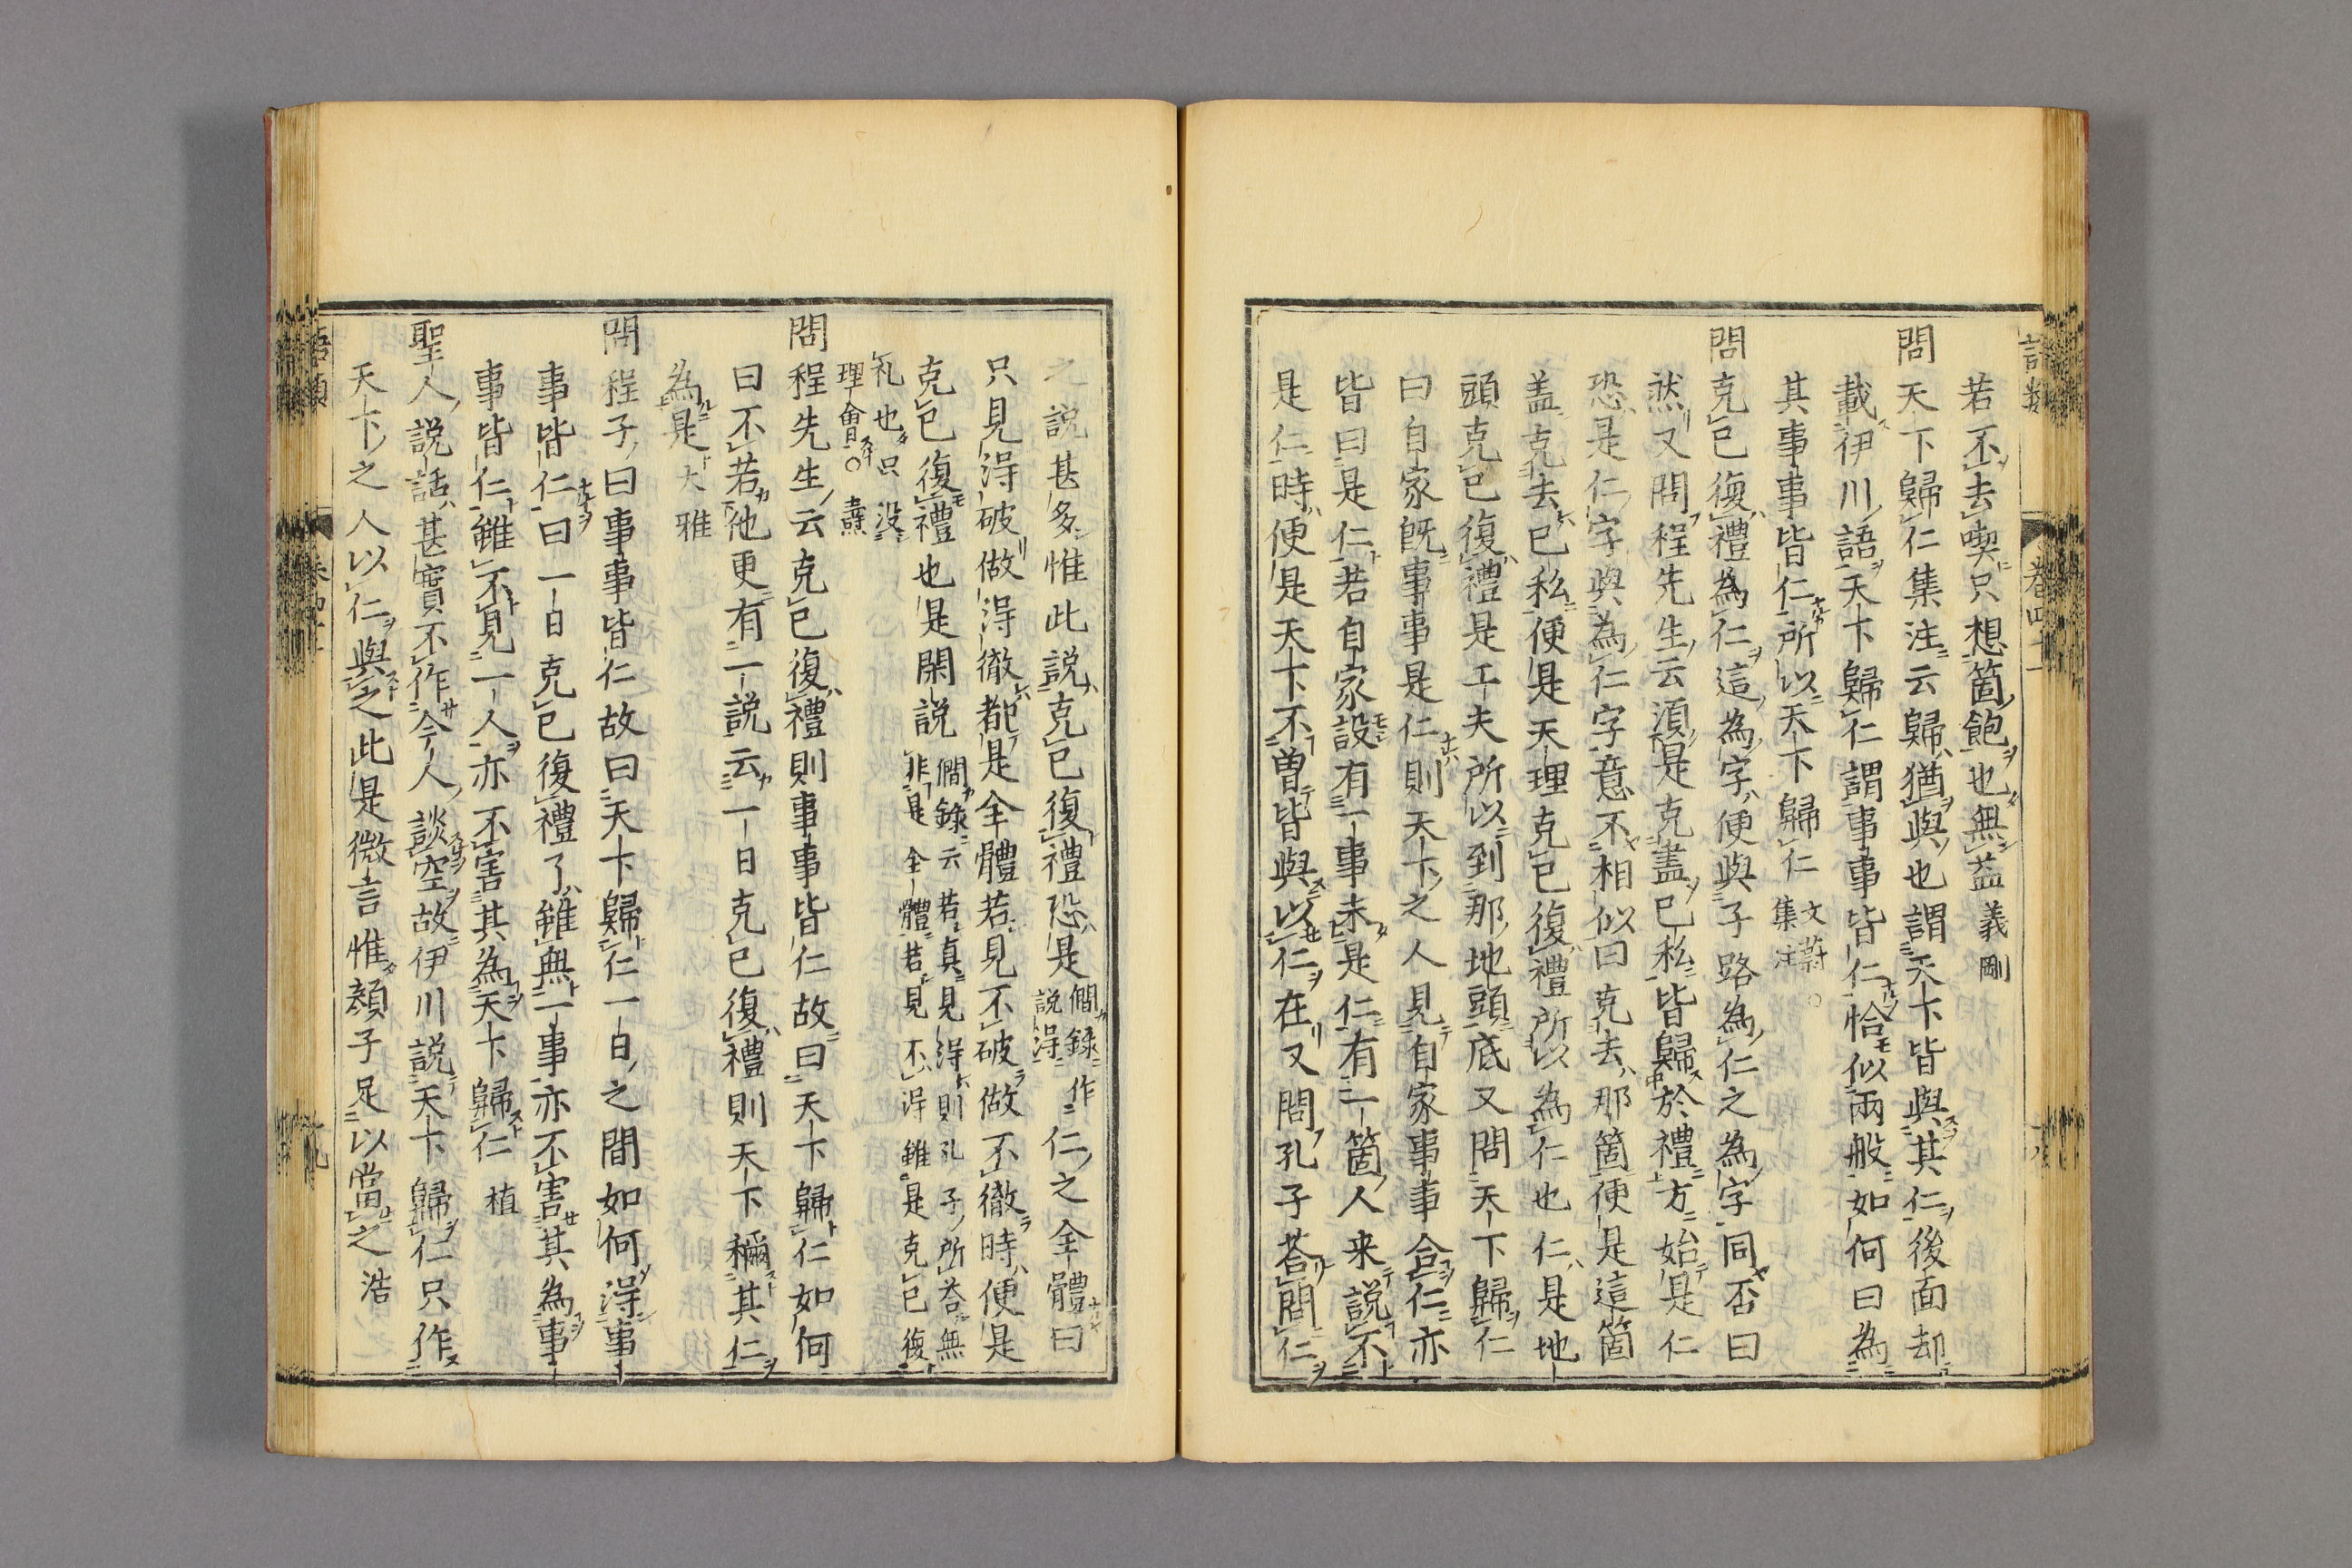 語類 卷四十一
若不去喫只想箇飽也無益義剛
問天下歸仁集注云歸猶與也謂天下皆與其仁後面却
載伊川語天下歸仁謂事事皆仁恰似兩般如何曰為
其事事皆仁所以天下歸仁文蔚○集注
問克己復禮為仁這為字便與子路為仁之為字同否曰
然又問程先生云須是克盡己私皆歸於禮方始是仁
恐是仁字與為仁字意不相似曰克去那箇便是這箇
盖克去己私便是天理克己復禮所以為仁也仁是地
頭克己復禮是工夫所以到那地頭底又問天下歸仁
曰自家既事事是仁則天下之人見自家事事合仁亦
皆曰是仁若自家設有一事未是仁有一箇人来説不
是仁時便是天下不曾皆與以仁在又問孔子荅問仁
之説甚多惟此説克己復禮恐是僩錄作説得仁之全體曰
只見得破做得徹都是全體若見不破做不徹時便是
克己復禮也是閑説僩錄云若真見得則孔子所荅無非是全體若見不得雖是克己復
礼也只没理會○燾
問程先生云克己復禮則事事皆仁故曰天下歸仁如何
曰不若他更有一説云一日克己復禮則天下稱其仁
為是大雅
問程子曰事事皆仁故曰天下歸仁一日之間如何得事
事皆仁曰一日克己復禮了雖無一事亦不害其為事
事皆仁雖不見一人亦不害其為天下歸仁植
聖人説話甚實不作今人談空故伊川説天下歸仁只作
天下之人以仁與之此是微言惟顔子足以當之浩
語類
九